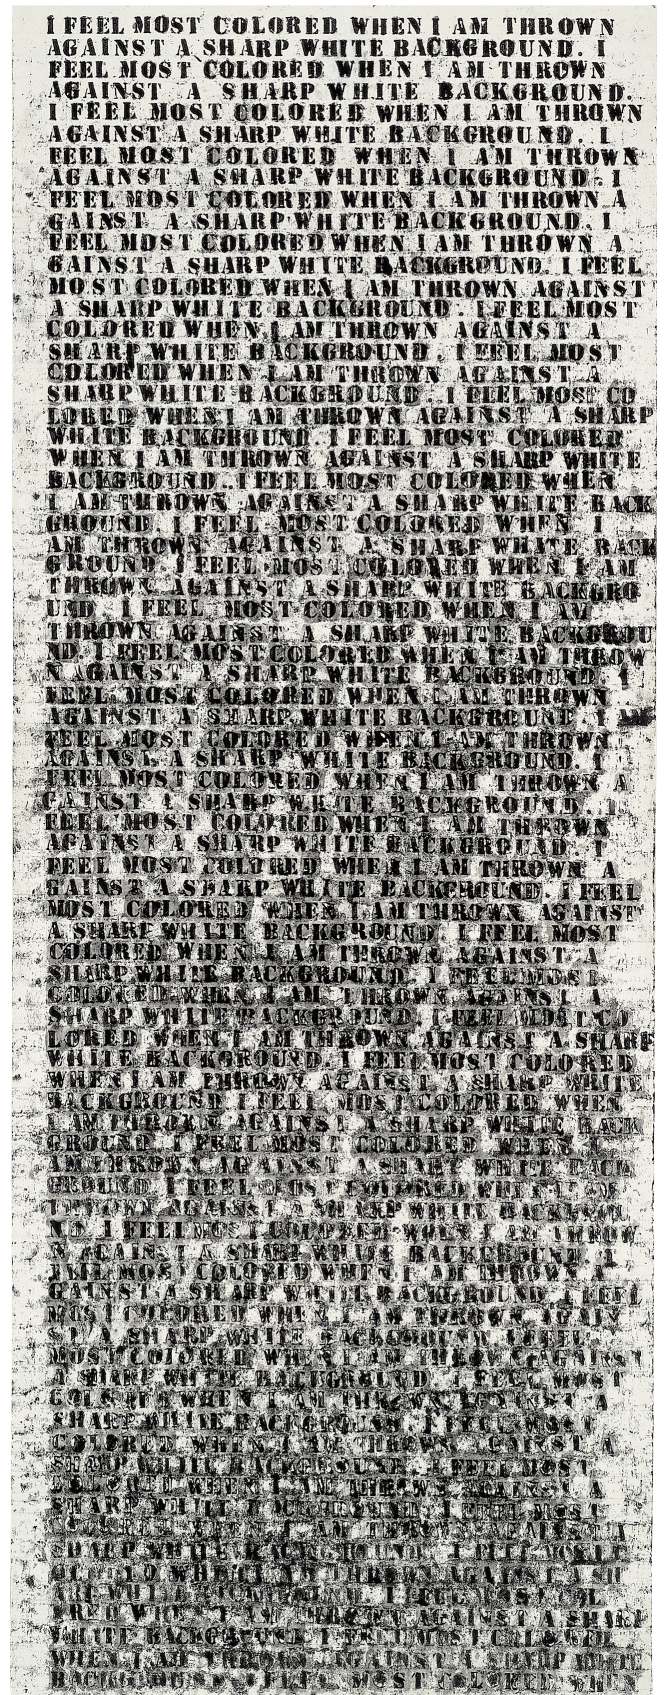 I FEEL MOST COLORED WHEN I AM THROWN
AGAINST A SHARP WHITE BACKGROUND. I
FEEL MOST COLORED WHEN I AM THROWN
AGAINST A SHARP WHITE BACKGROUND.
I FEEL MOST COLORED WHEN I AM THROWN
AGAINST A SHARP WHITE BACKGROUND. I
FEEL MOST COLORED WHEN I AM THROWN
AGAINST A SHARP WHITE BACKGROUND. I
FEEL MOST COLORED WHEN I AM THROWN A
GAINST A SHARP WHITE BACKGROUND. I
FEEL MOST COLORED WHEN I AM THROWN A
GAINST A SHARP WHITE BACKGROUND. I FEEL
MOST COLORED WHEN I AM THROWN AGAINST
A SHARP WHITE BACKGROUND. I FEEL MOST
COLORED WHEN I AM THROWN AGAINST A
SHARP WHITE BACKGROUND. I FEEL MOST
COLORED WHEN I AM THROWN AGAINST A
SHARP WHITE BACKGROUND. I FEEL MOST CO
LORED WHEN I AM THROWN AGAINST A SHARP
WHITE BACKGROUND. I FEEL MOST COLORED
WHEN I AM THROWN AGAINST A SHARP WHITE
BACKGROUND. I FEEL MOST COLORED WHEN
I AM THROWN AGAINST A SHARP WHITE BACK
GROUND. I FEEL MOST COLORED WHEN I
AM THROWN AGAINST A SHARP WHITE BACK
GROUND. I FEEL MOST COLORED WHEN I AM
THROWN AGAINST A SHARP WHITE BACKGRO
UND. I FEEL MOST COLORED WHEN I AM
THROWN AGAINST A SHARP WHITE BACKGROU
ND. I FEEL MOST COLORED WHEN I AM THROW
N AGAINST A SHARP WHITE BACKGROUND. I
FEEL MOST COLORED WHEN I AM THROWN
AGAINST A SHARP WHITE BACKGROUND. I
FEEL MOST COLORED WHEN I AM THROWN
AGAINST A SHARP WHITE BACKGROUND. I
FEEL MOST COLORED WHEN I AM THROWN A
GAINST A SHARP WHITE BACKGROUND
FEEL MOST COLORED WHEN I AM THROWN
AGAINST A SHARP WHITE BACKGROUND. I
FEEL MOST COLORED WHEN I AM THROWN A
GAINST A SHARP WHITE BACKGROUND. I FEEL
MOST COLORED WHEN I AM THROWN AGAINST
A SHARP WHITE BACKGROUND. I FEEL MOST
COLORED WHEN I AM THROWN AGAINST A
SHARP WHITE BACKGROUND. I FEEL MOST
COLORED WHEN I AM THROWN AGAINST A
SHARP WHITE BACKGROUND. I FEEL MOST CO
LORED WHEN I AM THROWN AGAINST A SHARP
WHITE BACKGROUND. I FEEL MOST COLORED
WHEN I AM THROWN AGAINST A SHARP WHITE
BACKGROUND I FEEL MOST COLORED WHEN
I AM THROWN AGAINST A SHARP WHITE BACK
GROUND. I FEEL MOST COLORED WHEN I
AM THROWN AGAINST A SHARP WHITE BACK
GROUND I FEEL MOST COLORED WHEN I AM
THROWN AGAINST A SHARP WHITE BACKGROU
ND. I FEEL MOST COLORED WHEN I AM THROW
N AGAINST A SHARP WHITE BACKGROUND. I
FEEL MOST COLORED WHEN I AM THROWN A
GAINST A SHARP WHITE BACKGROUND. I FEEL
MOST COLORED WHEN I AM THROWN AGAIN
ST A SHARP WHITE BACKGROUND. I FEEL
MOST COLORED WHEN I AM THROWN AGAINST
A SHARP WHITE BACKGROUND. I FEEL MOST
COLORED WHEN I AM THROWN AGAINST A
SHARP WHITE BACKGROUND. I FEEL MOST
COLORED WHEN I AM THROWN AGAINST A
SHARP WHITE BACKGROUND. I FEEL MOST
COLORED WHEN I AM THROWN AGAINST A
SHARP WHITE BACKGROUND I FEEL MOST
COLORED WHEN I AM THROWN AGAINST A
SHARP WHITE BACKGROUND I FEEL MOST
WHEN I AM THROWN AGAINST A SH
ARP WHITE I FEEL MOST
WHEN I AM AGAINST A SHARP
WHITE BACKGROUND I FEEL MOST COLORED
WHEN I AM THROWN AGAINST A SHARP WHITE
BACKGROUND I FEEL MOST COLORED WHEN